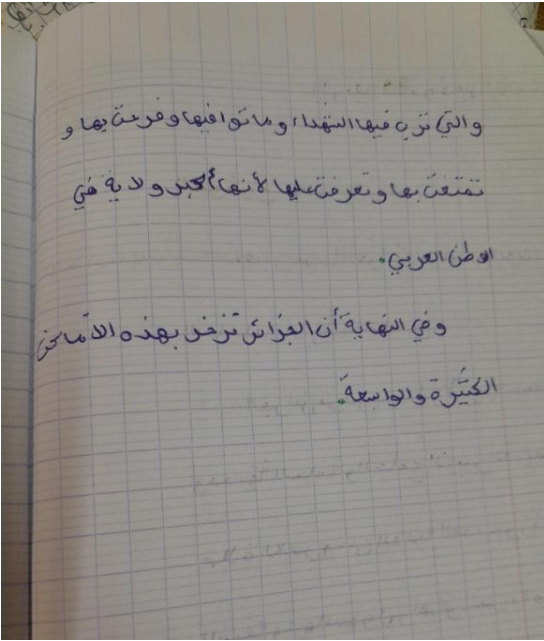 والتي ترب فيها الشهداء وماتوا فيها وفرحت بها و
تمتعت بها وتعرفت عليها لأنها أكبر ولاية في
الوطن العربي.
وفي النهاية أن الجزائر تزخر بهذه الأماكن
الكثيرة والواسعة.